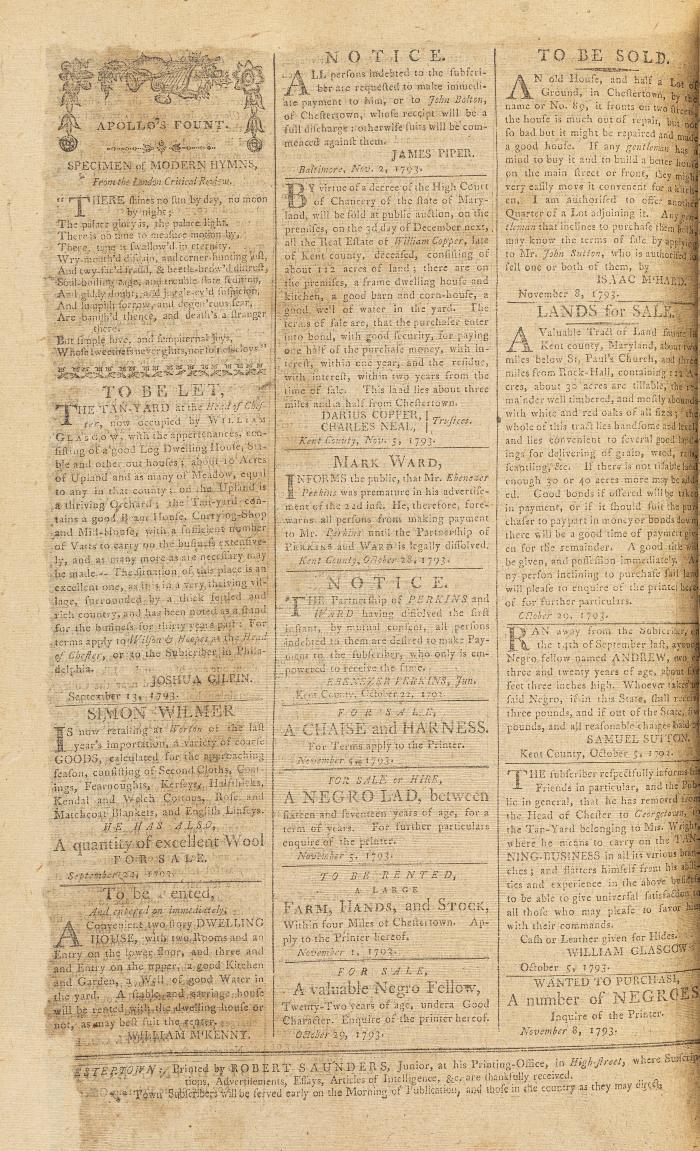 APOLLO'S FOUNT.
SPECIMEN of MODERN HYMNS,
From the London Critical Review.
"THERE shines no sun by day, no moon
by night;
The palace glory is, the palace light.
There is no time to measure motion by,
There, time is swallow'd in eternity.
Wry-mouth'd disdain, and corner-hunting lust,
And twy-fac'd fraud, & beetle-brow'd distrust,
Soul-boiling rage, and trouble-state sedition,
And giddy doubt, and goggle-ey'd suspicion,
And lumpish sorrow, and degen'rous fear,
Are banish'd thence, and death's a stranger
there:
But simple love, and sempiternal joys,
Whose sweetness never gluts, nor fulness cloys."
TO BE LET,
THE TAN-YARD at the Head of Ches-
ter, now occupied by WILLIAM
GLASGOW, with the appertenances, con-
sisting of a good Log Dwelling House, Sta-
ble and other out houses; about 10 Acres
of Upland and as many of Meadow, equal
to any in that county; on the Upland is
a thriving Orchard; the Tan-yard con-
tains a good Beam House, Currying-Shop
and Mill-House, with a sufficient number
of Vatts to carry on the business extensive-
ly, and as many more as are necessary may
be made — The situation of this place is an
excellent one, as it is in a very thriving vil-
lage, surrounded by a thick settled and
rich country, and has been noted as a stand
for the business for thirty years past. For
terms apply to Wilson & Hooper at the Head
of Chester, or to the Subscriber in Phila-
delphia.
JOSHUA GILPIN.
September 13, 1793.
SIMON WILMER
IS now retailing at Worton of the last
year's importation, a variety of coarse
GOODS, calculated for the approaching
season, consisting of Second Cloths, Coat-
ings, Fearnoughts, Kerseys, Halfthicks,
Kendal and Welch Cottons, Rose, and
Matchcoat Blankets, and English Linseys.
HE HAS ALSO,
A quantity of excellent Wool
FOR SALE.
September 24, 1793.
To be ented,
And entered on immediately,
A Convenient two story DWELLING
HOUSE, with two Rooms and an
Entry on the lower floor, and three and
and Entry on the upper, a good Kitchen
and Garden, a Well of good Water in
the yard. A stable and carriage house
will be rented with the dwelling-house or
not, as may best suit the renter.
WILLIAM M'KENNY.
NOTICE.
ALL persons indebted to the subscri-
ber are requested to make immedi-
ate payment to him, or to John Bolton,
of Chestertown, whose receipt will be a
full discharge; otherwise suits will be com-
menced against them.
JAMES PIPER.
Baltimore, Nov. 2, 1793.
BY virtue of a decree of the High Court
of Chancery of the State of Mary-
land, will be sold at public auction, on the
premises, on the 3d day of December next,
all the Real Estate of William Copper, late
of Kent county, deceased, consisting of
about 112 acres of land; there are on
the premises, a frame dwelling house and
kitchen, a good barn and corn-house, a
good well of water in the yard. The
terms of sale are, that the purchaser enter
into bond, with good security, for paying
one half of the purchase money, with in-
terest, within one year, and the residue,
with interest, within two years from the
time of sale. This land lies about three
miles and a half from Chestertown.
DARIUS COPPER,
CHARLES NEAL,
Trustees.
Kent County, Nov. 5, 1793.
MARK WARD,
INFORMS the public, that Mr. Ebenezer
Perkins was premature in his advertise-
ment of the 22d inst. He, therefore, fore-
warns all persons from making payment
to Mr. Perkins until the Partnership of
PERKINS and WARD is legally dissolved.
Kent County, October 28, 1793.
NOTICE.
THE Partnership of PERKINS and
WARD having dissolved the first
instant, by mutual consent, all persons
indebted to them are desired to make Pay-
ment to the subscriber, who only is em-
powered to receive the same.
EBENEZER PERKINS, Jun.
Kent County, October 22, 1793.
FOR SALE,
A CHAISE and HARNESS.
For Terms apply to the Printer.
November 5, 1793.
FOR SALE or HIRE,
A NEGRO LAD, between
sixteen and seventeen years of age, for a
term of years. For further particulars
enquire of the printer.
November 5, 1793.
TO BE RENTED,
A LARGE
FARM, HANDS, and STOCK,
Within four Miles of Chestertown. Ap-
ply to the Printer hereof.
November 1, 1793.
FOR SALE,
A valuable Negro Fellow,
Twenty-Two years of age, under a Good
Character. Enquire of the printer hereof.
October 29, 1793.
TO BE SOLD.
AN old House, and half a Lot of
Ground, in Chestertown, by the
name or No. 89, it fronts on two streets
the house is much out of repair, but not
so bad but it might be repaired and made
a good house. If any gentleman has a
mind to buy it and to build a better house
on the main street or front, they might
very easily move it convenient for a kitch-
en. I am authorised to offer another
Quarter of a Lot adjoining it. Any gen-
tleman that inclines to purchase them both,
may know the terms of sale by applying
to Mr. John Sutton, who is authorised to
sell one or both of them, by
ISAAC M'HARD.
November 8, 1793.
LANDS for SALE.
A Valuable Tract of Land situate in
Kent county, Maryland, about two
miles below St. Paul's Church, and three
miles from Rock-Hall, containing 122 a-
cres, about 30 acres are tillable, the re-
mainder well timbered, and mostly abounds
with white and red oaks of all sizes; the
whole of this tract lies handsome and level,
and lies convenient to several good land-
ings for delivering of grain, wood, rails,
scantling, &c. If there is not tillable land
enough 30 or 40 acres more may be add-
ed. Good bonds if offered will be taken
in payment, or if it should suit the pur-
chaser to pay part in money or bonds down
there will be a good time of payment giv-
en for the remainder. A good title will
be given, and possession immediately. A-
ny person inclining to purchase said land
will please to enquire of the printer here-
of for further particulars.
October 29, 1793.
RAN away from the Subscriber, on
the 14th of September last, a young
Negro fellow named ANDREW, two or
three and twenty years of age, about
feet three inches high. Whoever takes up
said Negro, if in this State, shall receive
three pounds, and if out of the State,
pounds, and all reasonable charges paid by
SAMUEL SUTTON.
Kent County, October 5, 1792.
THE subscriber respectfully informs his
Friends in particular, and the Pub-
lic in general, that he has removed from
the Head of Chester to Georgetown, to
the Tan-Yard belonging to Mrs. Wright,
where he means to carry on the TAN-
NING-BUSINESS in all its various bran-
ches; and flatters himself from his abili-
ties and experience in the above business
to be able to give universal satisfaction to
all those who may please to favor him
with their commands.
Cash or Leather given for Hides.
WILLIAM GLASGOW.
October 5, 1793.
WANTED TO PURCHASE,
A number of NEGROES.
Inquire of the Printer.
November 8, 1793.
ESTERTOWN: Printed by ROBERT SAUNDERS, Junior, at his Printing-Office, in High-street, where Subscrip-
tions, Advertisements, Essays, Articles of Intelligence, &c. are thankfully received.
Town Subscribers will be served early on the Morning of Publication, and those in the country as they may direct.